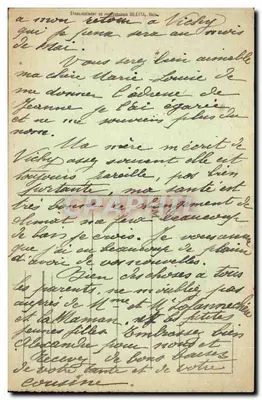 à mon retour à Vichy
qui je pense sera au mois
de Mai.
Vous serez bien aimable
ma chère Marie Louise de
me donner l'adresse de
Jeanne je l'ai égarée
et ne me souviens plus du
nom.
Ma mère m'écrit de
Vichy assez souvent elle est
toujours pareille, pas bien
portante, ma santé est
très bonne le changement de
climat m'a fait beaucoup
de bien je crois. Je vous assure
que j'ai beaucoup de plaisir
d'avoir de vos nouvelles.
Bien des choses à tous
les parents, ne m'oubliez pas
auprès de Mme et Mr
et la Maman, et les petites
jeunes filles. Embrassez bien
Alexandre pour nous et
Recevez de bons baisers
de votre tante et de votre
cousine.